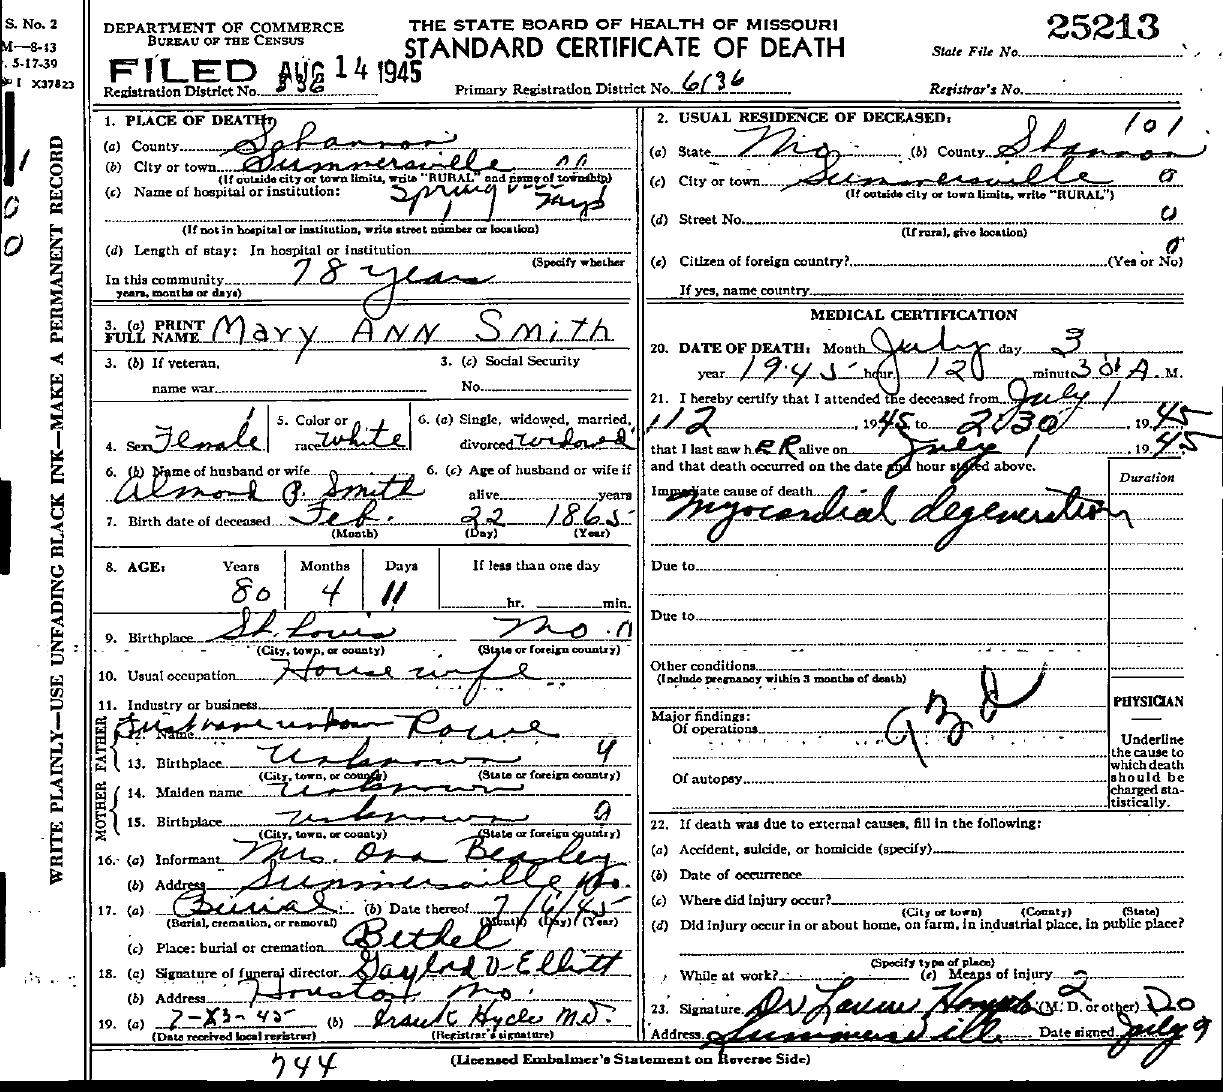 S. No. 2
M—8-43
5-17-39
I X37823
WRITE PLAINLY—USE UNFADING BLACK INK—MAKE A PERMANENT RECORD
DEPARTMENT OF COMMERCE
BUREAU OF THE CENSUS
THE STATE BOARD OF HEALTH OF MISSOURI
STANDARD CERTIFICATE OF DEATH
25213
State File No.
FILED AUG 14 1945
Registration District No. 336
Primary Registration District No. 6136
Registrar's No.
1. PLACE OF DEATH:
(a) County Shannon
(b) City or town Summersville
(If outside city or town limits, write "RURAL" and name of township)
(c) Name of hospital or institution: Spring
(If not in hospital or institution, write street number or location)
(d) Length of stay: In hospital or institution
(Specify whether
In this community 78 years
years, months or days)
2. USUAL RESIDENCE OF DECEASED: 101
(a) State Mo (b) County Shannon
(c) City or town Summersville 0
(If outside city or town limits, write "RURAL")
(d) Street No. 0
(If rural, give location)
0
(e) Citizen of foreign country? (Yes or No)
If yes, name country
3. (a) PRINT
FULL NAME Mary ANN Smith
3. (b) If veteran,
name war
3. (c) Social Security
No.
4. Sex Female
5. Color or
race white
6. (a) Single, widowed, married,
divorced widowed
6. (b) Name of husband or wife
Almond P. Smith
6. (c) Age of husband or wife if
alive years
7. Birth date of deceased Feb. 22 1865
(Month) (Day) (Year)
8. AGE: Years Months Days If less than one day
80 4 11 hr. min.
9. Birthplace St. Louis Mo.
(City, town, or county) (State or foreign country)
10. Usual occupation House wife
11. Industry or business
FATHER
12. Name First name unknown Rowe
13. Birthplace Unknown 4
(City, town, or county) (State or foreign country)
MOTHER
14. Maiden name Unknown
15. Birthplace unknown
(City, town, or county) (State or foreign country)
16. (a) Informant Mrs. Ona Beasley
(b) Address Summersville Mo.
17. (a) Burial (b) Date thereof 7/6/45
(Burial, cremation, or removal) (Month) (Day) (Year)
(c) Place: burial or cremation Bethel
18. (a) Signature of funeral director Gaylord V. Elliott
(b) Address Houston Mo.
19. (a) 7-23-45 (b) Frank Hyde M.D.
(Date received local registrar) (Registrar's signature)
MEDICAL CERTIFICATION
20. DATE OF DEATH: Month July day 3
year 1945 hour 12 minute 30 A. M.
21. I hereby certify that I attended the deceased from July 1
112, 1945 to 2030, 1945
that I last saw her alive on July 1, 1945
and that death occurred on the date and hour stated above.
Duration
Immediate cause of death
Myocardial degeneration
Due to
Due to
Other conditions
(Include pregnancy within 3 months of death)
Major findings:
Of operations
93d
Of autopsy
PHYSICIAN
Underline
the cause to
which death
should be
charged sta-
tistically.
22. If death was due to external causes, fill in the following:
(a) Accident, suicide, or homicide (specify)
(b) Date of occurrence
(c) Where did injury occur?
(City or town) (County) (State)
(d) Did injury occur in or about home, on farm, in industrial place, in public place?
(Specify type of place)
While at work? (e) Means of injury 2
23. Signature Dr (M. D. or other) DO
Address Summersville Date signed July 9
744
(Licensed Embalmer's Statement on Reverse Side)